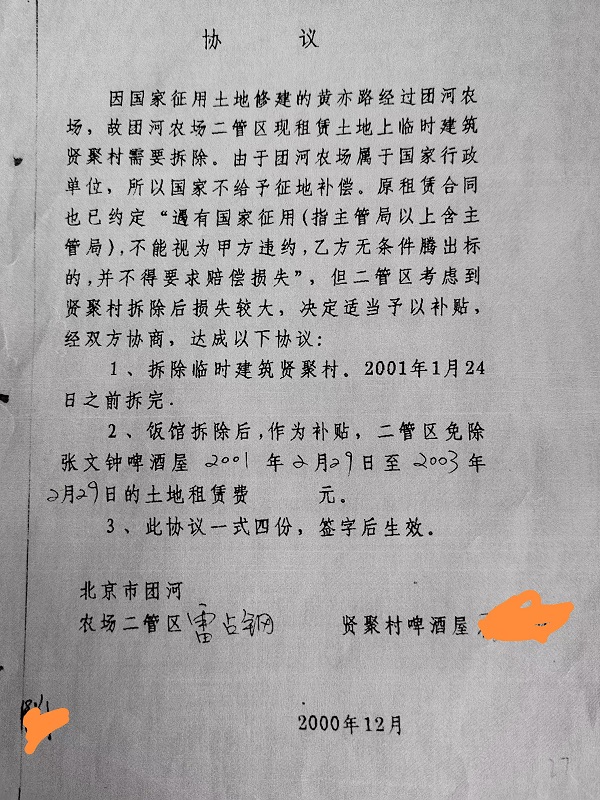 协 议
因国家征用土地修建的黄亦路经过团河农
场，故团河农场二管区现租赁土地上临时建筑
贤聚村需要拆除。由于团河农场属于国家行政
单位，所以国家不给予征地补偿。原租赁合同
也已约定“遇有国家征用(指主管局以上含主
管局),不能视为甲方违约,乙方无条件腾出标
的,并不得要求赔偿损失”，但二管区考虑到
贤聚村拆除后损失较大，决定适当予以补贴，
经双方协商，达成以下协议：
1、拆除临时建筑贤聚村。2001年1月24
日之前拆完.
2、饭馆拆除后,作为补贴，二管区免除
张文钟啤酒屋 2001 年2月29日至 2003 年
2月29日的土地租赁费 元。
3、此协议一式四份，签字后生效。
北京市团河
农场二管区雷占钢 贤聚村啤酒屋
2000年12月
27